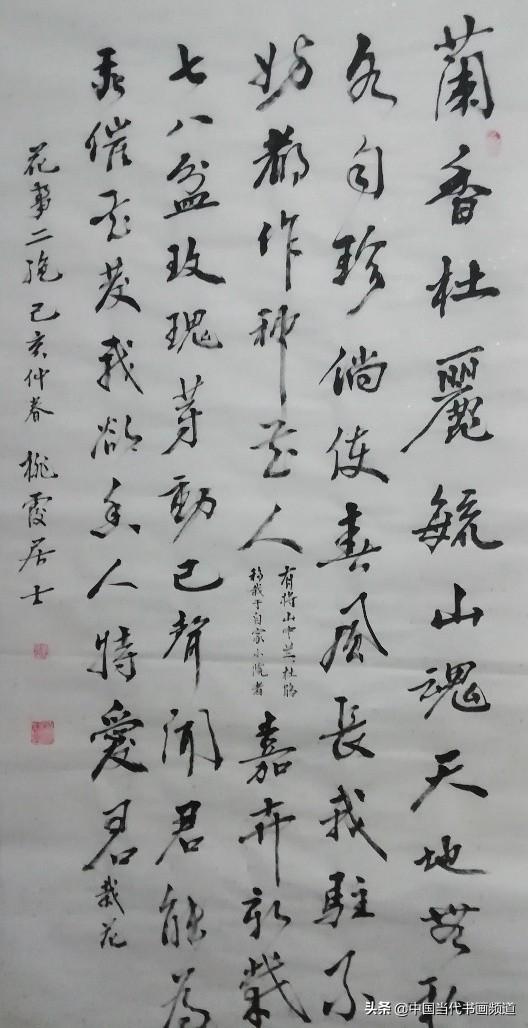 蘭香杜麗毓山魂天地無私
各自珍倘使春風長我駐不
妨都作种花人
有将山中兰杜鹃
移栽于自家小院者
嘉卉新栽
七八盆玫瑰芽動已聲聞君能為
催花發我欲人特愛君
栽花
花事二绝己亥仲春 桃霞居士
头条 @中国当代书画频道